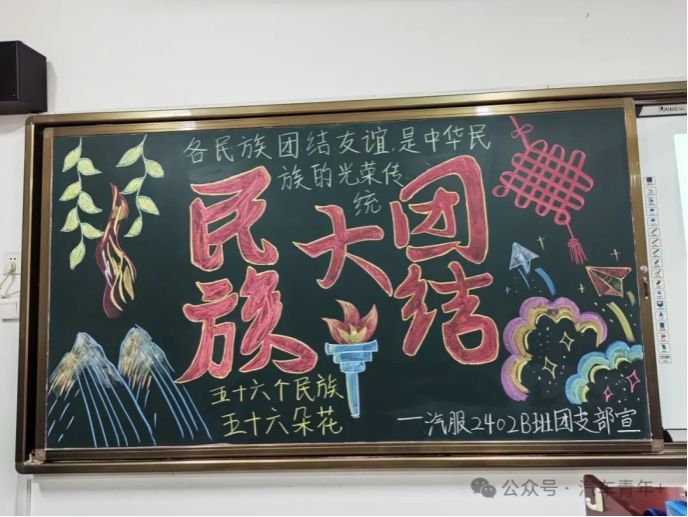 各民族团结友谊,是中华民
族的光荣传
统
民族大团结
五十六个民族
五十六朵花
一汽服2402B班团支部宣
公众号·汽车青年+